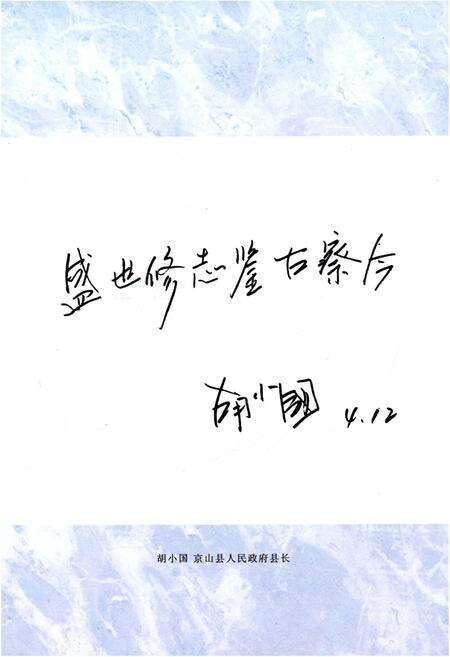 盛世修志鉴古察今
胡小国 4.12
胡小国 京山县人民政府县长